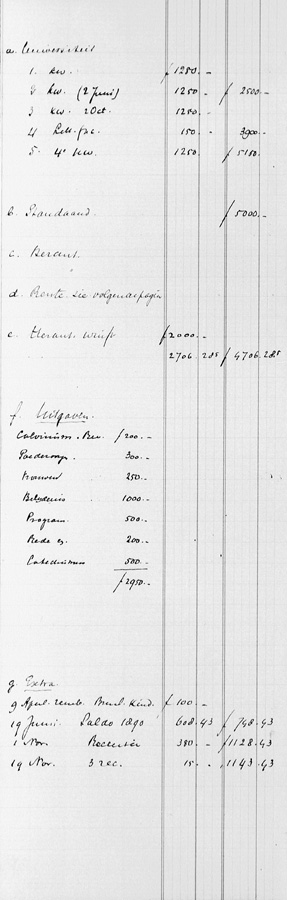 a. Universiteit
1. kw. f 1250. -
2 kw. (2 Juni) 1250 - f 2500. -
3 kw. 2 Oct. 1250. -
4 Lett. fac. 150 - 3900. -
5. 4e kw. 1250. f 5150.
b. Standaard. f 5000. -
c. Heraut.
d. Rente. zie volgende pagin
e. Heraut winst f 2000. -
2706. 285 f 4706.285
f. Uitgaven.
Calvinism. Rev. f 200. -
300. -
Vrouwen 250. -
1000. -
Program. 500. -
Rede 200. -
Catechismus 500. -
f 2950. -
g. Extra
9 April. remb. kind. f 100. -
19 Juni. Saldo 1890 608.43 f 748.43
1 Nov. 380. - f 1128.43
19 Nov. 3 rec. 15. - f 1143.43